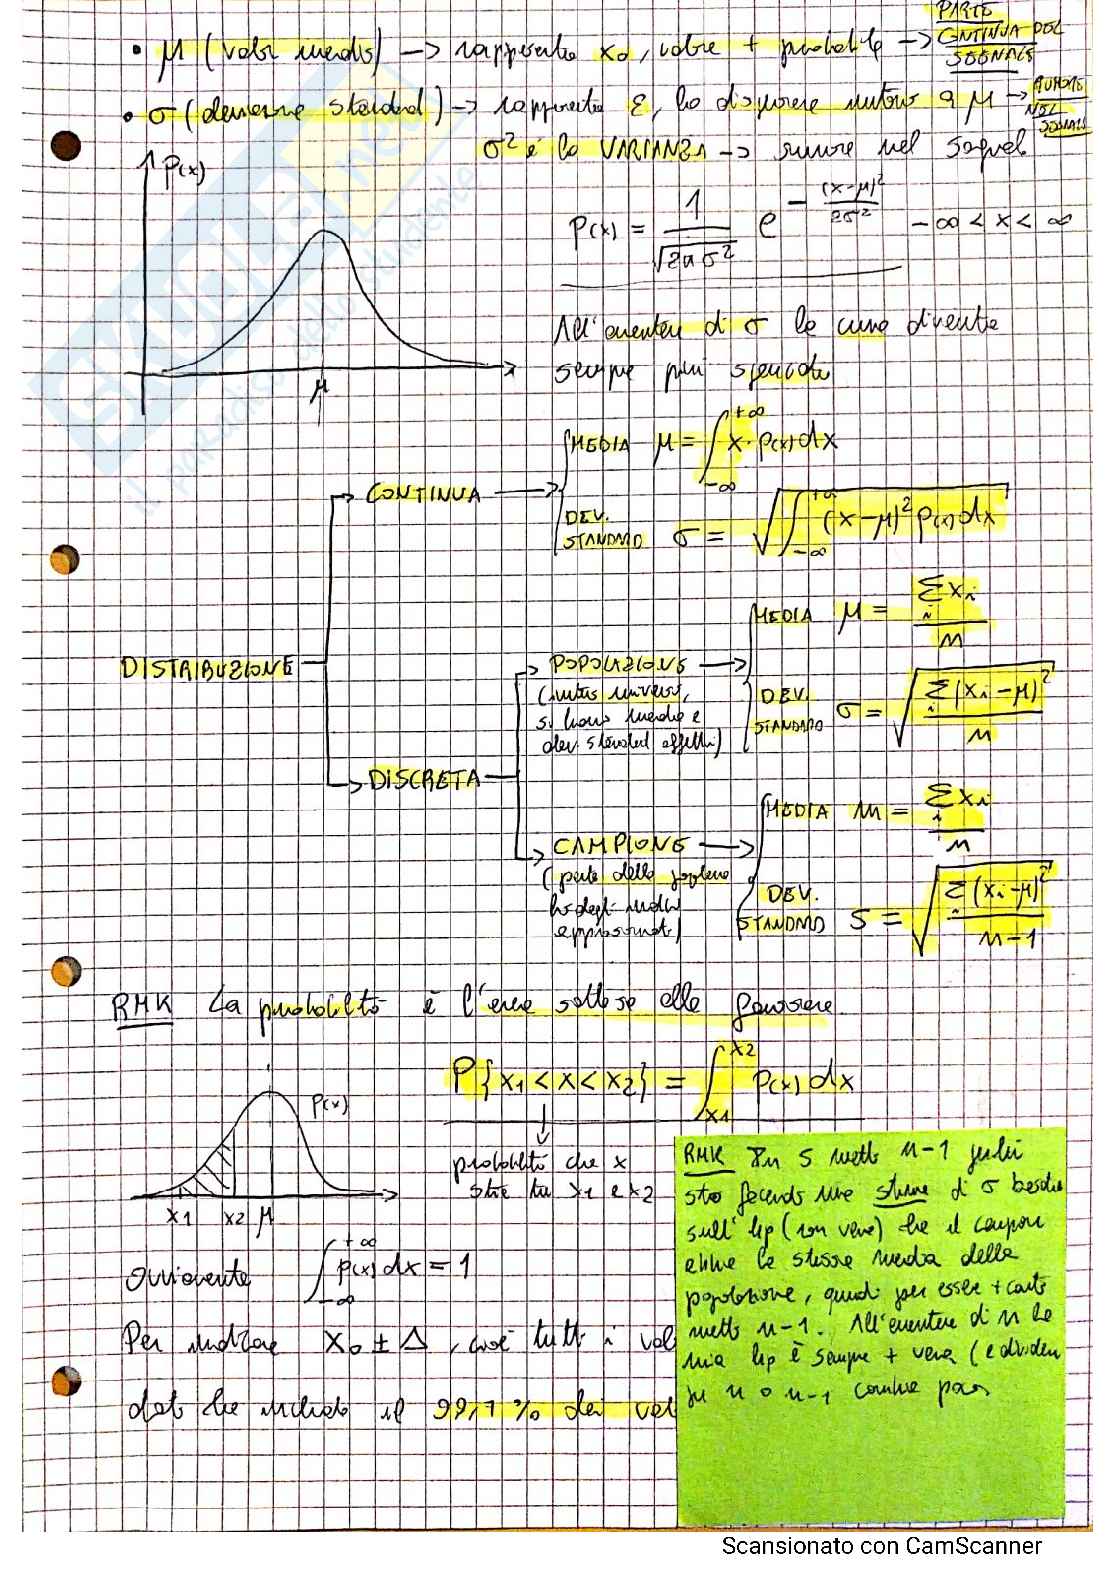 • μ (valor medio) → rappresenta x₀, valore + probabile → PARTE
CONTINUA DEL
SEGNALE
• σ (deviazione standard) → rappresenta ε, la dispersione intorno a μ →
NEL
SEGNALE
σ² è la VARIANZA → rumore nel segnale
P(x)
P(x) = 1/√(2πσ²) e^(-(x-μ)²/2σ²) -∞ < x < ∞
All'aumentare di σ la curva diventa
sempre più
μ
MEDIA μ = ∫_{-∞}^{+∞} x · p(x) dx
CONTINUA →
DEV.
STANDARD σ = √(∫_{-∞}^{+∞} (x-μ)² p(x) dx)
MEDIA μ = Σᵢ xᵢ / n
DISTRIBUZIONE
POPOLAZIONE →
(intero universo,
si hanno media e
dev. standard effettivi)
DEV.
STANDARD σ = √(Σᵢ (xᵢ-μ)² / n)
DISCRETA
MEDIA m = Σᵢ xᵢ / n
CAMPIONE →
(parte della popolazione
ho degli indici
approssimati)
DEV.
STANDARD S = √(Σᵢ (xᵢ-μ)² / n-1)
RMK La probabilità è l'area sottesa alla gaussiana
P{x₁ < x < x₂} = ∫_{x₁}^{x₂} p(x) dx
p(x)
x₁ x₂ μ
probabilità che x
stia tra x₁ e x₂
Ovviamente ∫_{-∞}^{+∞} p(x) dx = 1
Per indicare x₀ ± Δ, cioè tutti i val
dato che includo il 99,7 % dei val
RMK In S metto n-1 perché
sto facendo una stima di σ basata
sull'hp (non vera) che il campione
abbia la stessa media della
popolazione, quindi per essere + cauto
metto n-1. All'aumentare di n la
mia hp è sempre + vera (e dividere
per n o n-1 cambia poco
SKUOLA.net
il paradiso dello studente
Scansionato con CamScanner